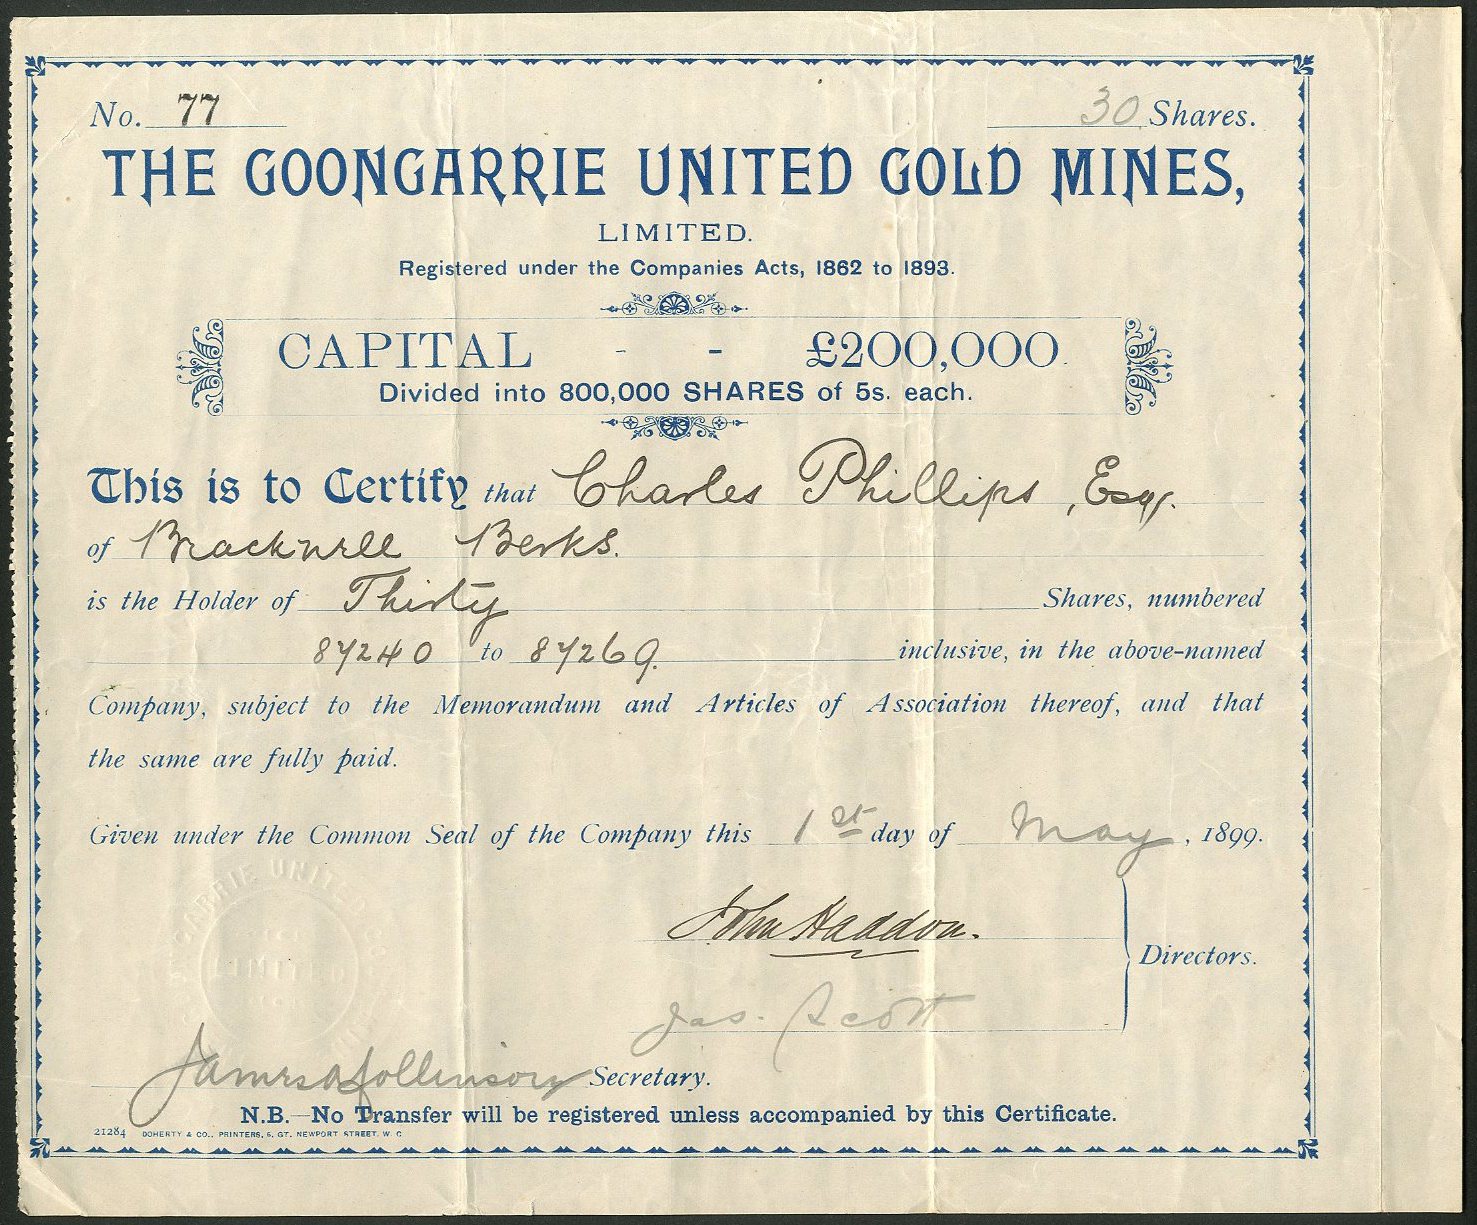 No. 77 30 Shares.
THE GOONGARRIE UNITED GOLD MINES,
LIMITED.
Registered under the Companies Acts, 1862 to 1893.
CAPITAL - - £200,000.
Divided into 800,000 SHARES of 5s. each.
This is to Certify that Charles Phillips, Esq.
of Bracknell Berks.
is the Holder of Thirty Shares, numbered
87240 to 87269. inclusive, in the above-named
Company, subject to the Memorandum and Articles of Association thereof, and that
the same are fully paid.
Given under the Common Seal of the Company this 1st day of May, 1899.
GARRIE UNITED
LIMITED
John Haddon.
Directors.
Jas. Scott
James Secretary.
N.B.—No Transfer will be registered unless accompanied by this Certificate.
21284 DOHERTY & CO., PRINTERS, 6, GT. NEWPORT STREET, W. C